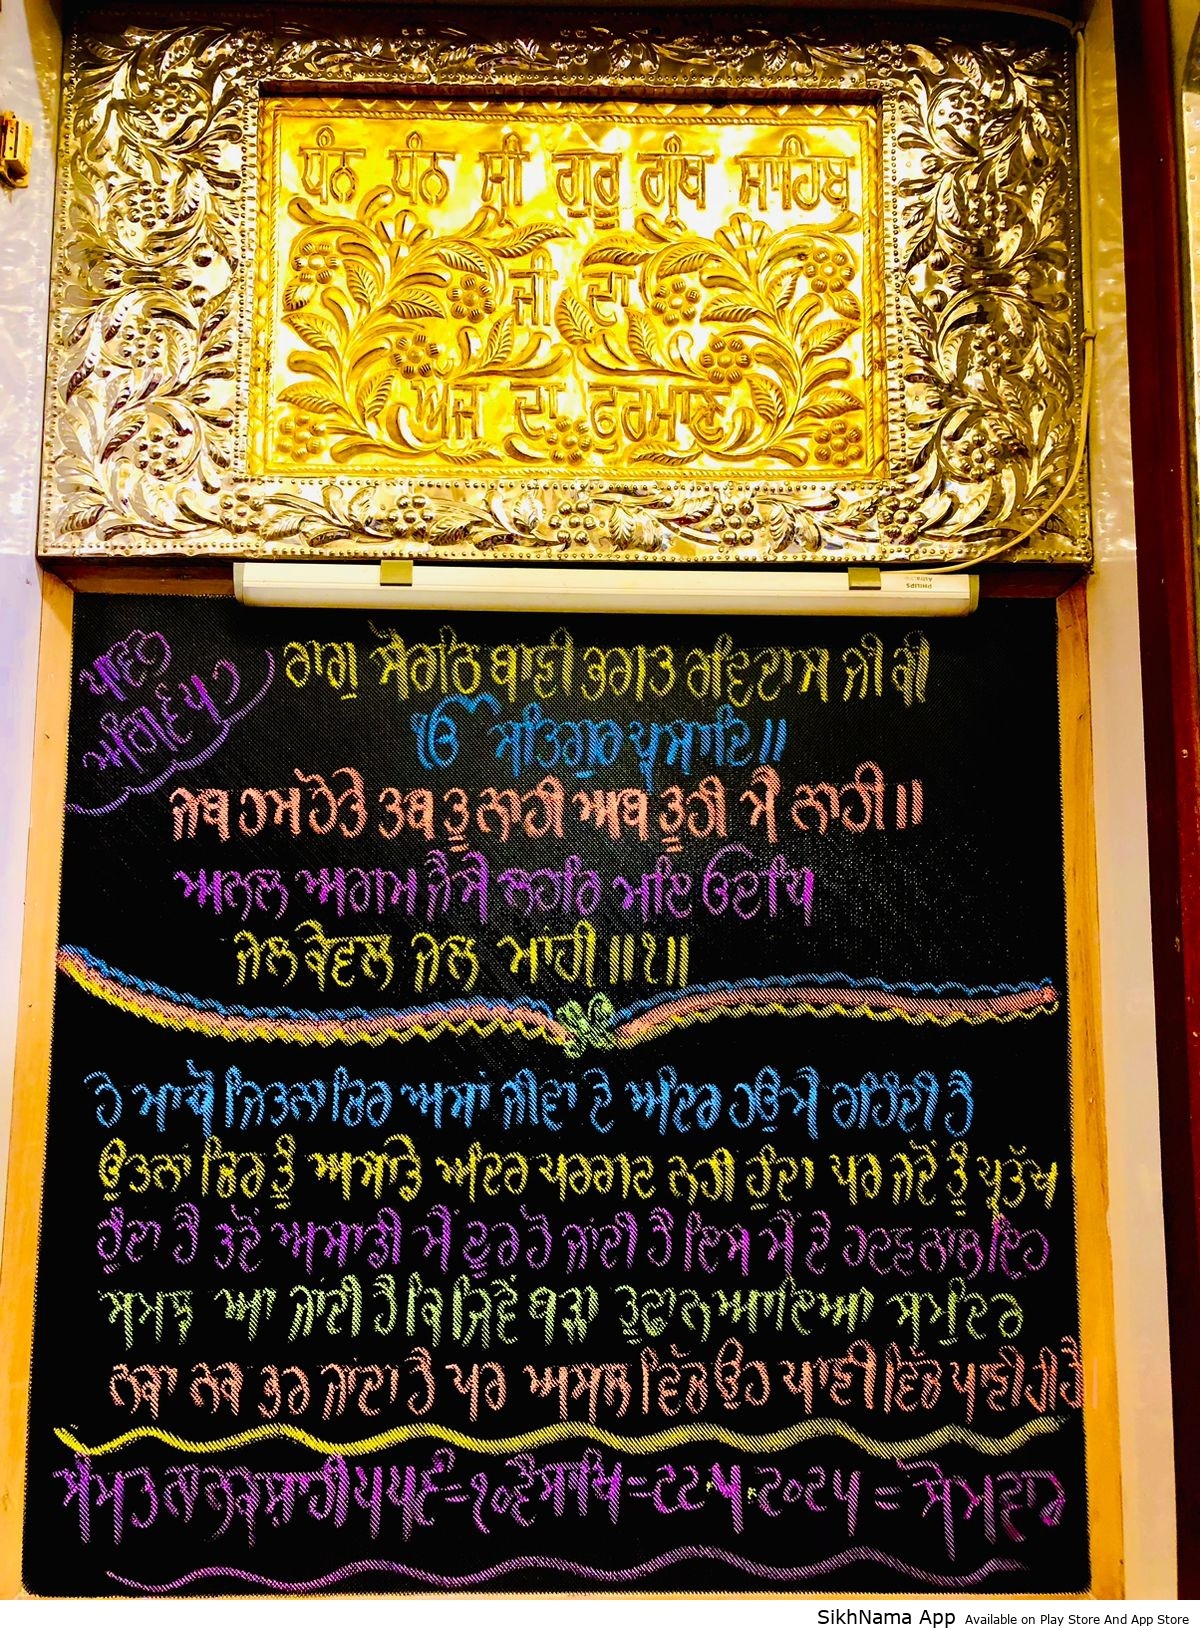 ਧੰਨ ਧੰਨ ਸ੍ਰੀ ਗੁਰੂ ਗ੍ਰੰਥ ਸਾਹਿਬ
ਜੀ ਦਾ
ਅਜ ਦਾ ਫੁਰਮਾਣ
PHILIPS
ਪਾਵਨ
ਅੰਗ
ਰਾਗੁ ਸੋਰਠਿ ਬਾਣੀ ਭਗਤ ਰਵਿਦਾਸ ਜੀ ਕੀ
ੴ ਸਤਿਗੁਰ ਪ੍ਰਸਾਦਿ॥
ਜਬ ਹਮ ਹੋਤੇ ਤਬ ਤੂ ਨਾਹੀ ਅਬ ਤੂਹੀ ਮੈ ਨਾਹੀ॥
ਅਨਲ ਅਗਮ ਜੈਸੇ ਲਹਰਿ ਮਇ ਓਦਧਿ
ਜਲ ਕੇਵਲ ਜਲ ਮਾਂਹੀ॥੧॥
ਹੇ ਮਾਧੋ ਜਿਤਨਾ ਚਿਰ ਅਸਾਂ ਜੀਵਾਂ ਦੇ ਅੰਦਰ ਹਉਮੈ ਰਹਿੰਦੀ ਹੈ
ਉਤਨਾਂ ਚਿਰ ਤੂੰ ਅਸਾਡੇ ਅੰਦਰ ਪਰਗਟ ਨਹੀ ਹੁੰਦਾ ਪਰ ਜਦੋਂ ਤੂੰ ਪ੍ਰਤੱਖ
ਹੁੰਦਾ ਹੈ ਤਦੋਂ ਅਸਾਡੀ ਮੈਂ ਦੂਰ ਹੋ ਜਾਂਦੀ ਹੈ ਇਸ ਮੈਂ ਦੇ ਹਟਣ ਨਾਲ ਇਹ
ਸਮਝ ਆ ਜਾਂਦੀ ਹੈ ਕਿ ਜਿਵੇਂ ਬੜਾ ਤੂਫਾਨ ਆਇਆ ਸਮੁੰਦਰ
ਨਕਾ ਨਕ ਭਰ ਜਾਂਦਾ ਹੈ ਪਰ ਅਸਲ ਵਿੱਚ ਉਹ ਪਾਣੀ ਵਿੱਚ ਪਾਣੀ ਹੀ ਹੈ
ਸੰਮਤ ਨਾਨਕਸ਼ਾਹੀ ੫੫੭=੧੦ ਵੈਸਾਖ=੨੨.੪.੨੦੨੫ = ਸੋਮਵਾਰ
SikhNama App Available on Play Store And App Store